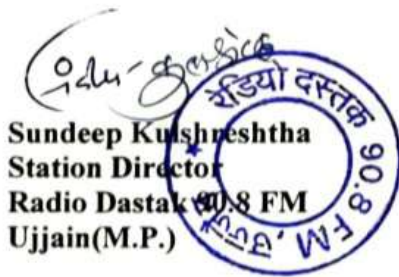 Sundeep Kulshreshtha
Station Director
Radio Dastak 90.8 FM
Ujjain(M.P.)
रेडियो दस्तक 90.8 FM, उज्जैन